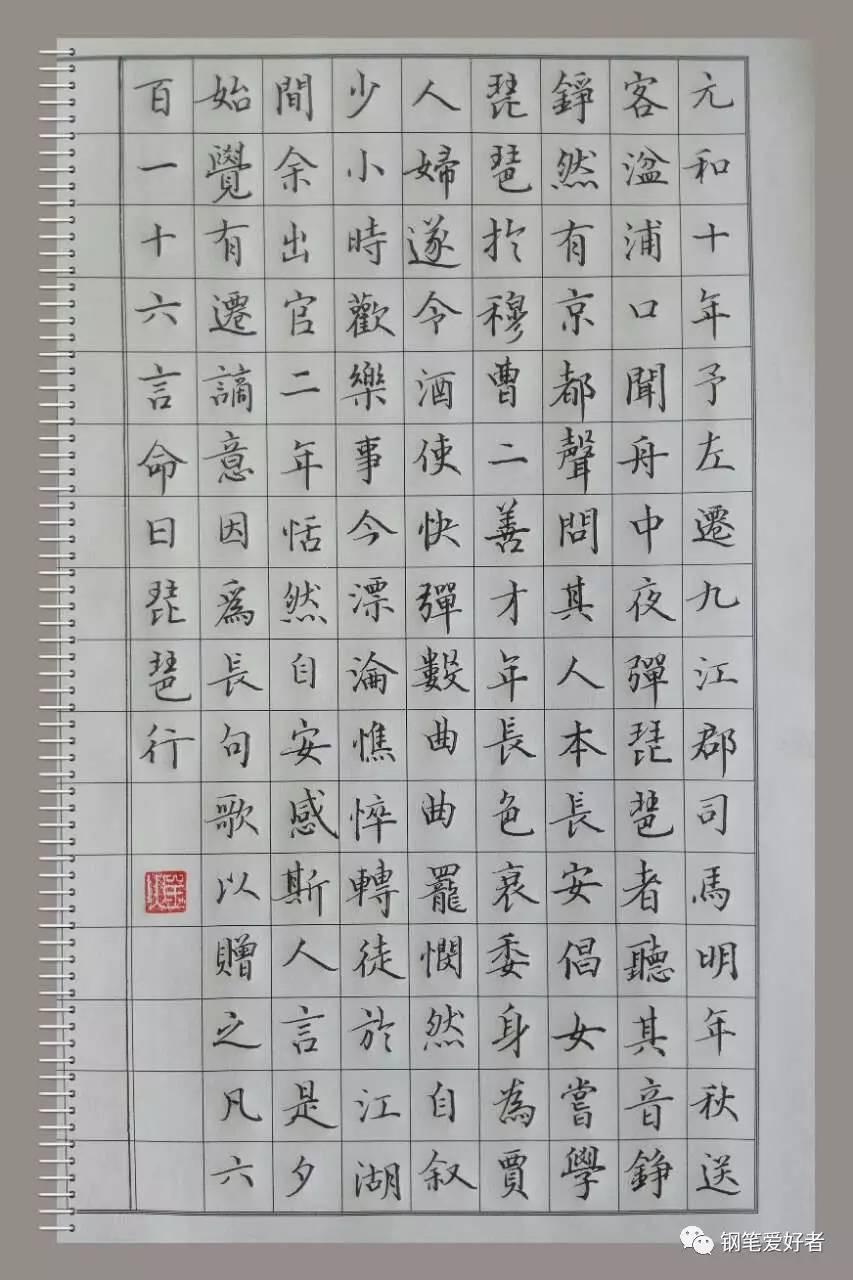 元和十年予左遷九江郡司馬明年秋送
客湓浦口聞舟中夜彈琵琶者聽其音錚
錚然有京都聲問其人本長安倡女嘗學
琵琶於穆曹二善才年長色衰委身為賈
人婦遂令酒使快彈數曲曲罷憫然自叙
少小時歡樂事今漂淪憔悴轉徒於江湖
間余出官二年恬然自安感斯人言是夕
始覺有遷謫意因爲長句歌以贈之凡六
百一十六言命曰琵琶行
钢笔爱好者